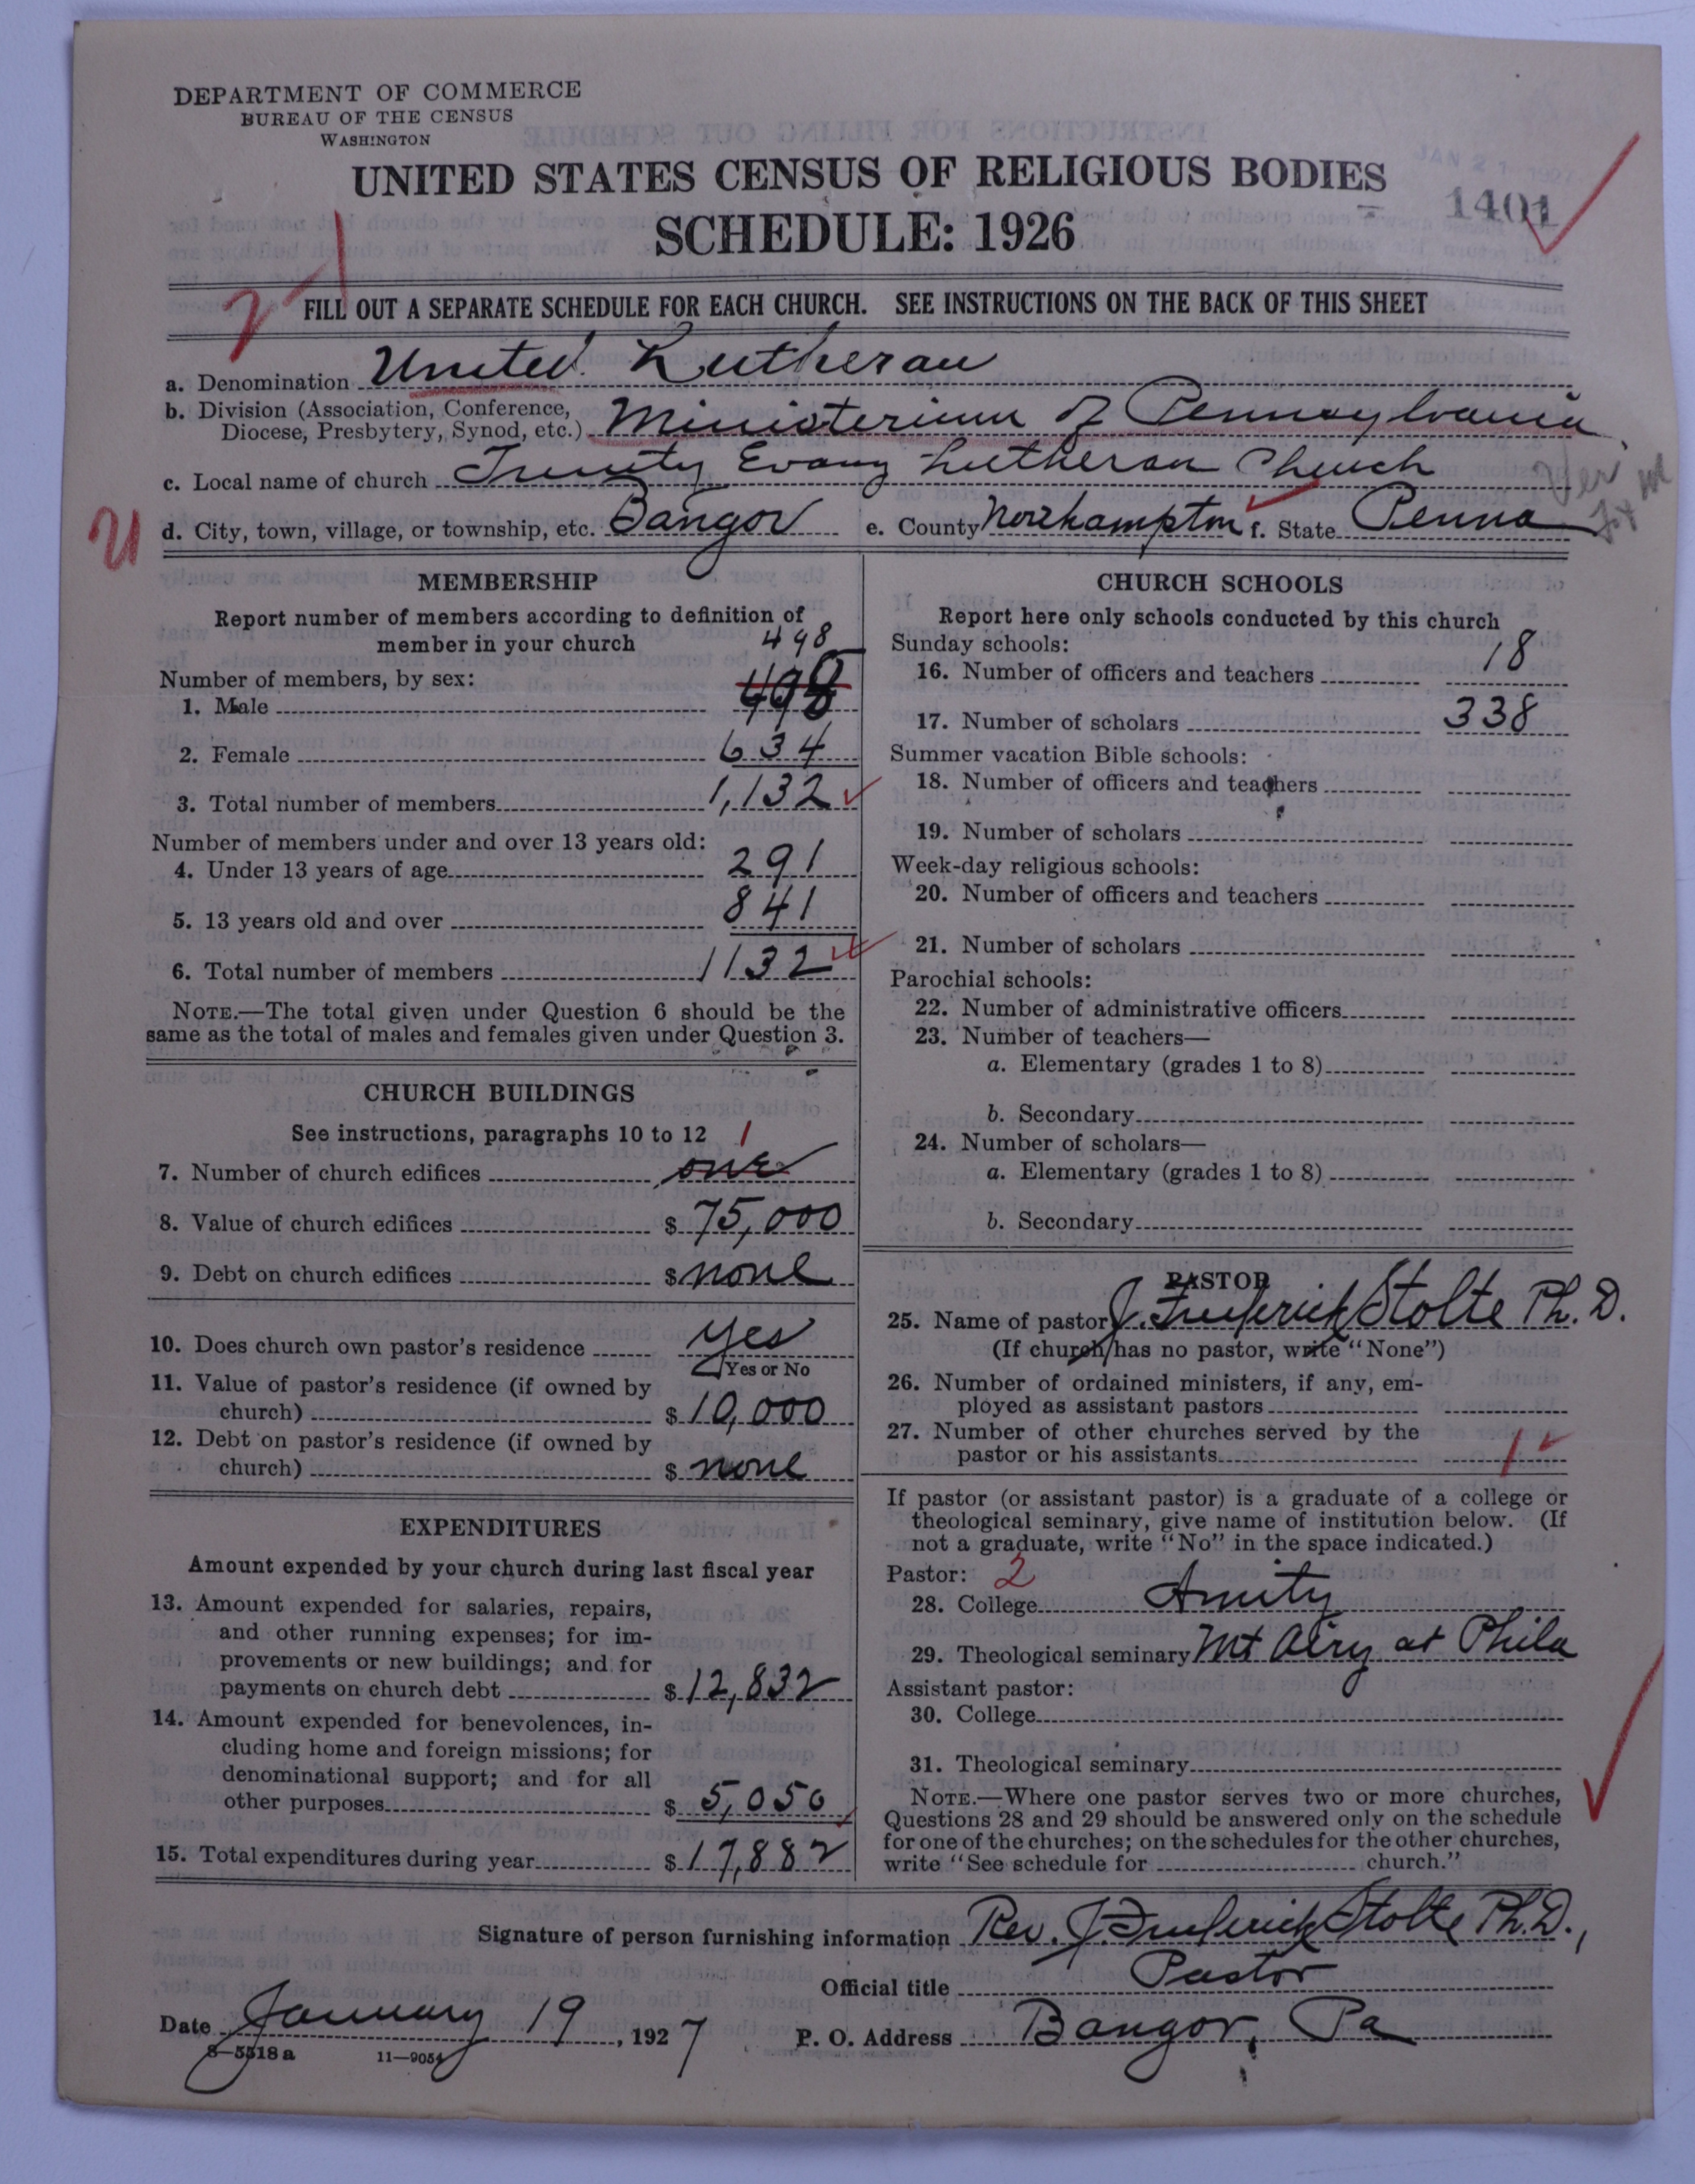 DEPARTMENT OF COMMERCE
BUREAU OF THE CENSUS
WASHINGTON
UNITED STATES CENSUS OF RELIGIOUS BODIES
SCHEDULE: 1926
JAN 21
1401
FILL OUT A SEPARATE SCHEDULE FOR EACH CHURCH. SEE INSTRUCTIONS ON THE BACK OF THIS SHEET
a. Denomination United Lutheran
b. Division (Association, Conference, Diocese, Presbytery, Synod, etc.) Ministerium of Pennsylvania
c. Local name of church Trinity Evang Lutheran Church
d. City, town, village, or township, etc. Bangor e. County Northampton f. State Penna
MEMBERSHIP
Report number of members according to definition of
member in your church
498
Number of members, by sex:
1. Male 498
2. Female 634
3. Total number of members 1,132
Number of members under and over 13 years old:
4. Under 13 years of age 291
5. 13 years old and over 841
6. Total number of members 1132
NOTE.—The total given under Question 6 should be the
same as the total of males and females given under Question 3.
CHURCH BUILDINGS
See instructions, paragraphs 10 to 12 1
7. Number of church edifices one
8. Value of church edifices $ 75,000
9. Debt on church edifices $ none
10. Does church own pastor's residence yes
Yes or No
11. Value of pastor's residence (if owned by
church) $ 10,000
12. Debt on pastor's residence (if owned by
church) $ none
EXPENDITURES
Amount expended by your church during last fiscal year
13. Amount expended for salaries, repairs,
and other running expenses; for im-
provements or new buildings; and for
payments on church debt $ 12,832
14. Amount expended for benevolences, in-
cluding home and foreign missions; for
denominational support; and for all
other purposes $ 5,050
15. Total expenditures during year $ 17,882
CHURCH SCHOOLS
Report here only schools conducted by this church
Sunday schools:
16. Number of officers and teachers 18
17. Number of scholars 338
Summer vacation Bible schools:
18. Number of officers and teachers
19. Number of scholars
Week-day religious schools:
20. Number of officers and teachers
21. Number of scholars
Parochial schools:
22. Number of administrative officers
23. Number of teachers—
a. Elementary (grades 1 to 8)
b. Secondary
24. Number of scholars—
a. Elementary (grades 1 to 8)
b. Secondary
PASTOR
25. Name of pastor J. Frederick Stolte Ph. D.
(If church has no pastor, write "None")
26. Number of ordained ministers, if any, em-
ployed as assistant pastors
27. Number of other churches served by the
pastor or his assistants 1
If pastor (or assistant pastor) is a graduate of a college or
theological seminary, give name of institution below. (If
not a graduate, write "No" in the space indicated.)
Pastor: 2
28. College Amity
29. Theological seminary Mt Airy at Phila
Assistant pastor:
30. College
31. Theological seminary
NOTE.—Where one pastor serves two or more churches,
Questions 28 and 29 should be answered only on the schedule
for one of the churches; on the schedules for the other churches,
write "See schedule for church."
Signature of person furnishing information Rev. J. Frederick Stolte Ph.D.,
Official title Pastor
Date January 19, 1927 P. O. Address Bangor, Pa
8—5518 a 11—9054